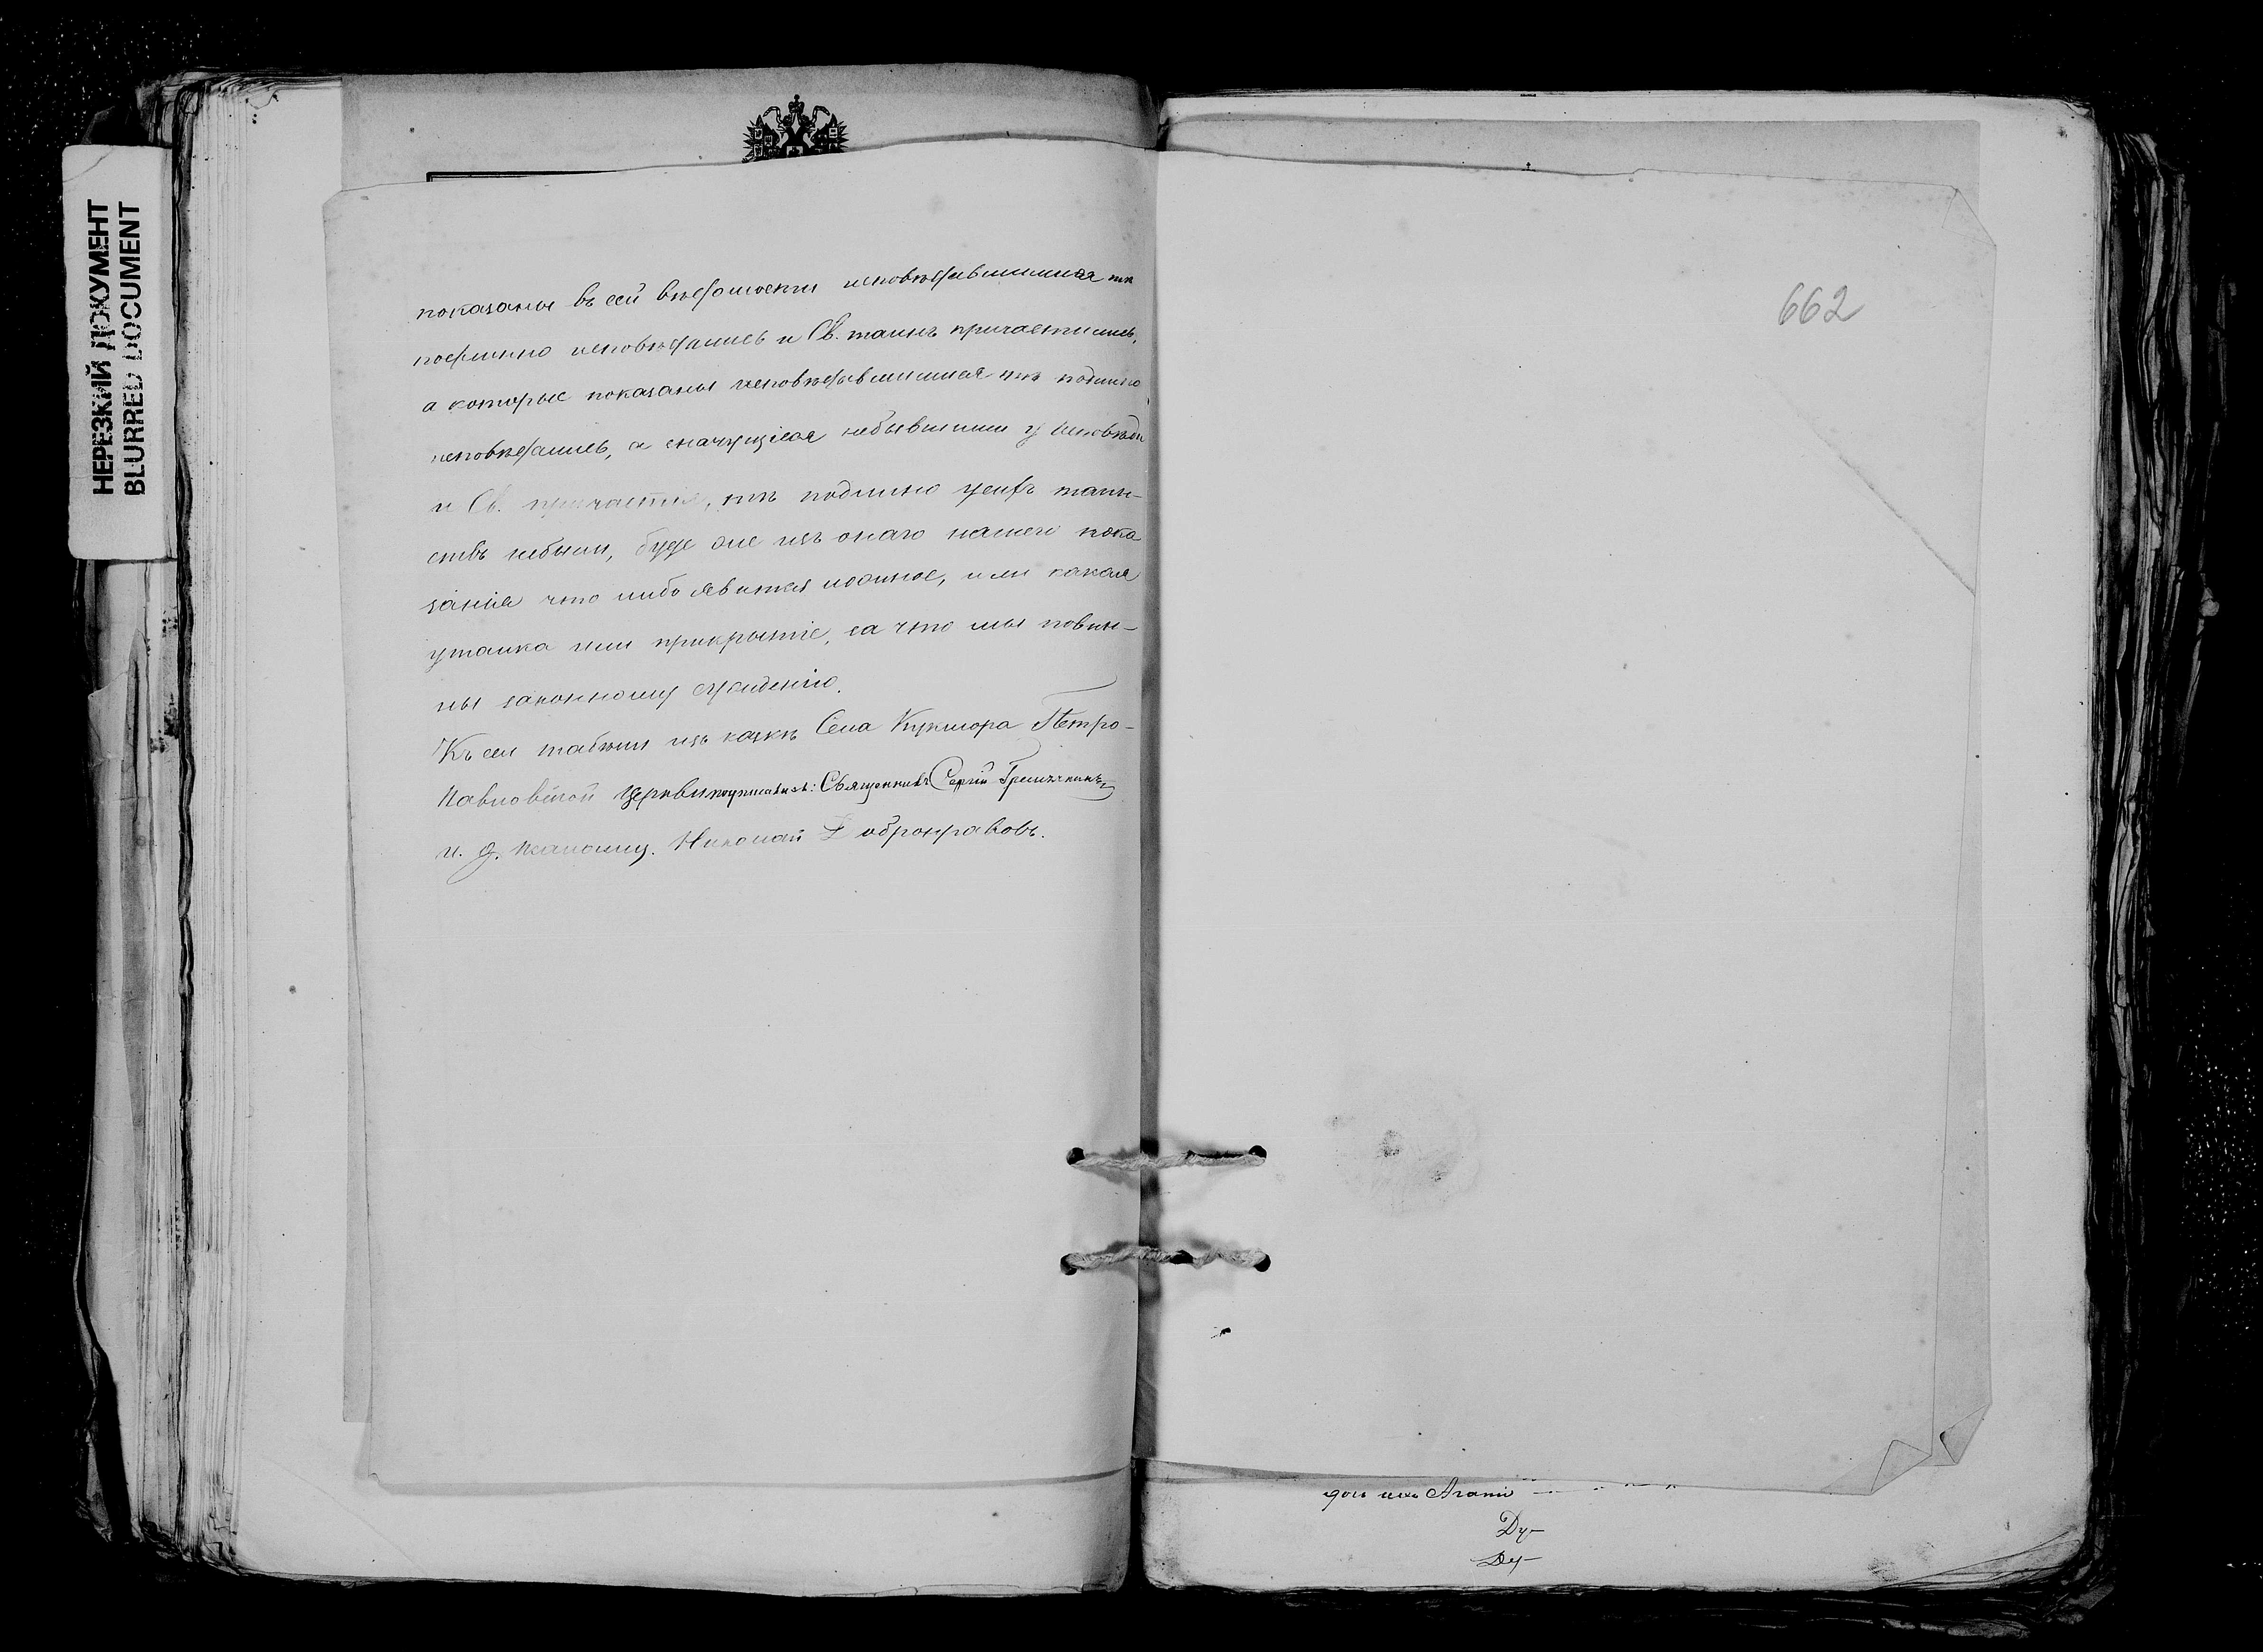 НЕРЕЗКИЙ ДОКУМЕНТ
BLURRED DOCUMENT
показаны въ сей вѣдомости исповѣдавшимися тѣ
подлинно исповѣдались и Св. таинъ причастились,
а которые показаны исповѣдывшимися тѣ подлинно
исповѣдались, а значущіеся небывшими у исповѣди
и Св. причастія, тѣ подлинно у сихъ таин-
ствъ небыли, буде же изъ онаго нашего пока
занія что либо явится ложное, или какая
утайка или прикрытіе, за что мы повин-
ны законному сужденію.
Къ сей табели изъ Села Кукмора Петро-
Павловской церкви подписались: Священникъ Сергій
и. д. псаломщ. Николай Добронравовъ.
662
дочь ихъ
Ду-
Ду-